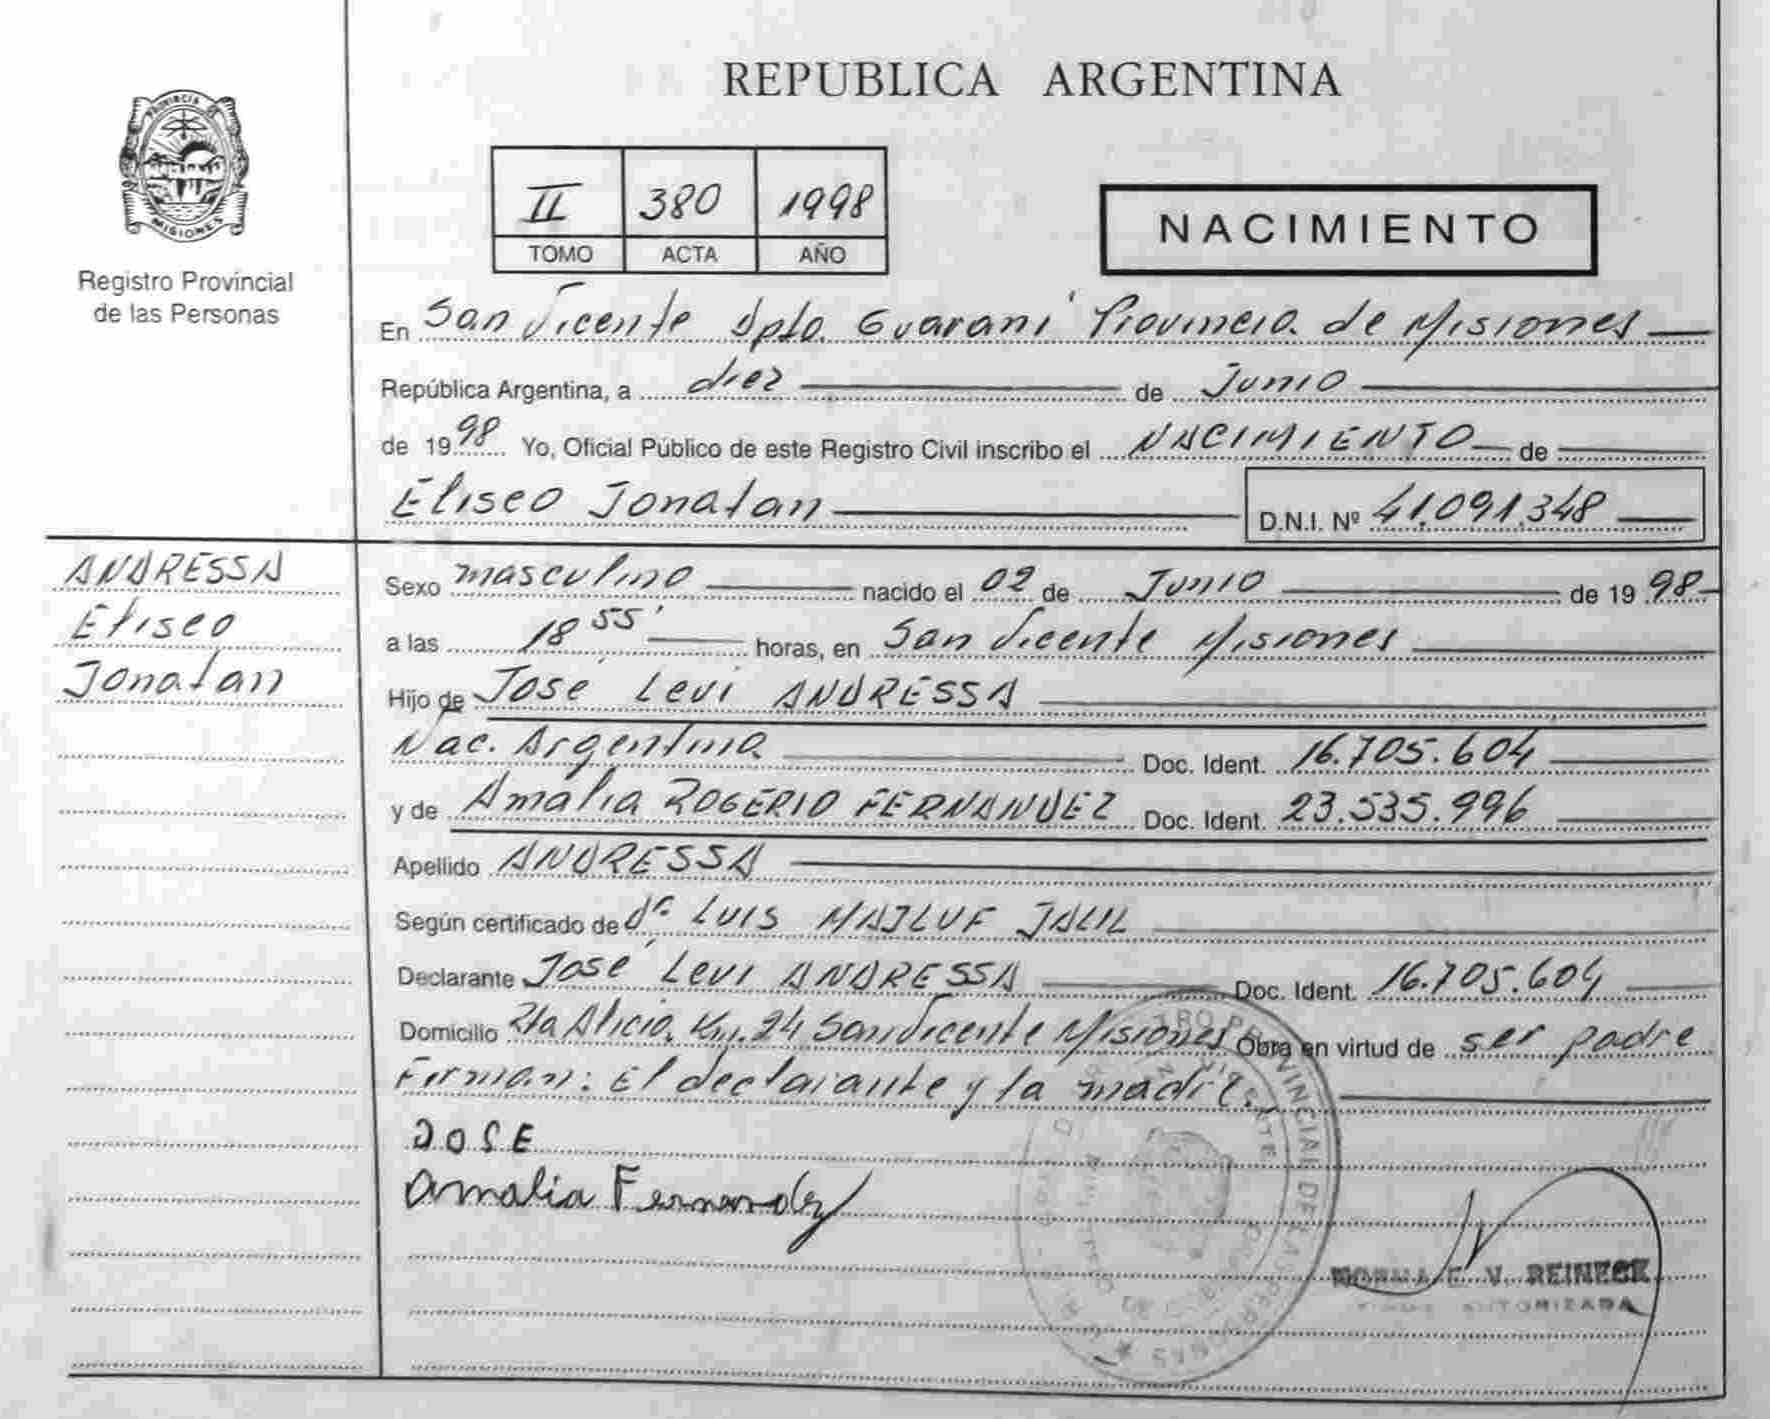 PROVINCIA DE
MISIONES
Registro Provincial
de las Personas
REPUBLICA ARGENTINA
II 380 1998
TOMO ACTA AÑO
NACIMIENTO
En San Vicente Dpto. Guaraní Provincia de Misiones
República Argentina, a diez de Junio
de 1998 Yo, Oficial Público de este Registro Civil inscribo el NACIMIENTO de
Eliseo Jonatan D.N.I. Nº 41.091.348
ANDRESSA
Eliseo
Jonatan
Sexo masculino nacido el 02 de Junio de 1998
a las 18 55' horas, en San Vicente Misiones
Hijo de José Levi ANDRESSA
Nac. Argentina Doc. Ident. 16.705.604
y de Amalia ROGERIO FERNANDEZ Doc. Ident. 23.535.996
Apellido ANDRESSA
Según certificado de dr. LUIS MAJLUF JALIL
Declarante José Levi ANDRESSA Doc. Ident. 16.705.604
Domicilio Rta Alicia, Km. 24 San Vicente Misiones Obra en virtud de ser padre
Firman: El declarante y la madre.
JOSE
Amalia Fernandez
PROVINCIAL DE LAS PERSONAS
NORMA E. V. REINECK
AUTORIZADA